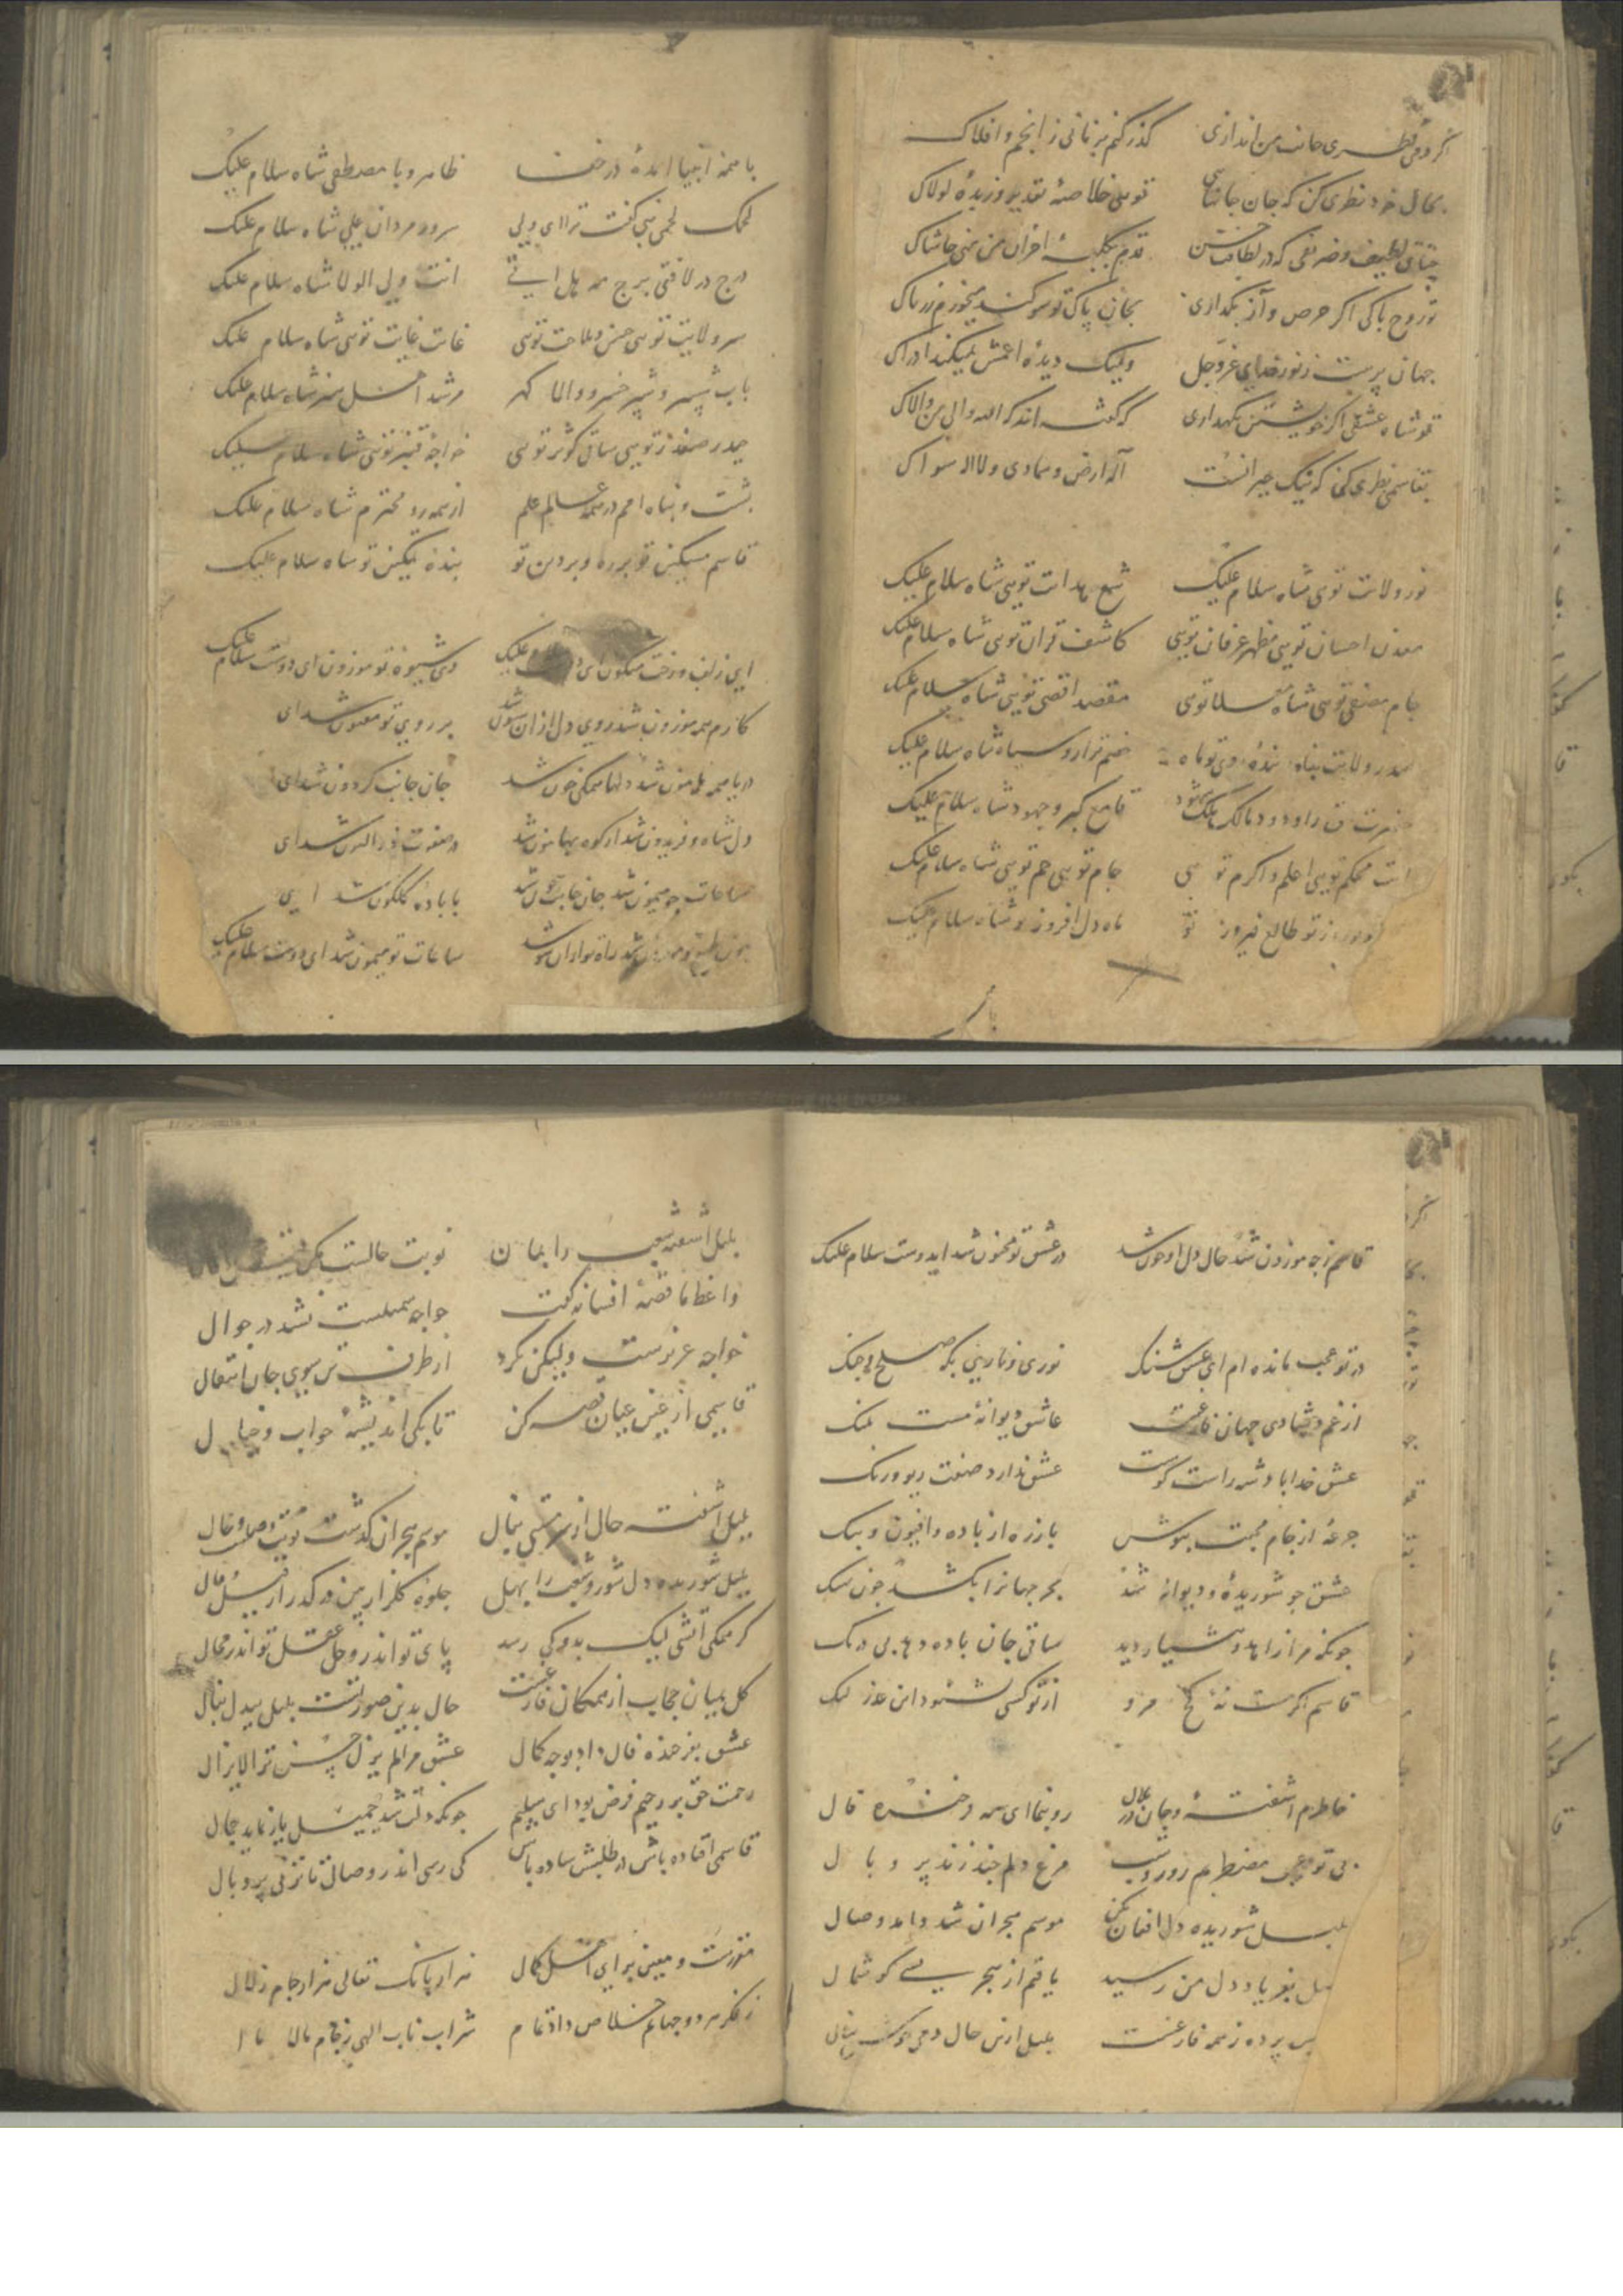 اگر دمی نظری جانب من اندازی گذر کنم بزمانی ز انجم و افلاک
بحال خود نظری کن که جان جانهایی تویی خلاصه تقدیر و زبده لولاک
چنان لطیف و ظریفی که در لطافت حسن قدم بکلبه احزان من نهی حاشاک
تو روح پاکی اگر حرص و آز بگذاری بجان پاک تو سوگند میخورم زر پاک
جهان پرست ز نور خدای عز و جل ولیک دیده اعمش نمیکند ادراک
تو شاه عشقی اگر خویشتن نگهداری که گفته اند که الله والی من والاک
بقاسمی نظری کن که نیک حیرانست اله ارض و سمادی ولا اله سواک
نور ولایت تویی شاه سلام علیک شمع هدایت تویی شاه سلام علیک
معدن احسان تویی مظهر عرفان تویی کاشف قران تویی شاه سلام علیک
جام مصفی تویی شاه معلا تویی مقصد اقصی تویی شاه سلام علیک
صدر ولایت پناه بنده روی تو ماه خصم ترا رو سیاه شاه سلام علیک
مالک ملک قامع کبر و جهود شاه سلام علیک
انت محکم تویی اعلم و اکرم تویی جام تویی جم تویی شاه سلام علیک
تو طالع فیروز تو ماه دل افروز تو شاه سلام علیک
با همه انبیا آمده در خفا ظاهر و با مصطفی شاه سلام علیک
لحمک لحمی نبی گفت ترا ای ولی سرور مردان علی شاه سلام علیک
درج در لافتی برج مه هل اتی انت ولی الولا شاه سلام علیک
سر ولایت تویی حسن و ملاحت تویی غایت غایت تویی شاه سلام علیک
باب شبر و شبیر خسرو والا گهر مرشد اهل هنر شاه سلام علیک
حیدر صفدر تویی ساقی کوثر تویی خواجه قنبر تویی شاه سلام علیک
پشت و پناه امم در همه عالم علم از همه رو محترم شاه سلام علیک
قاسم مسکین تو بر ره و بر دین تو بنده یکین تو شاه سلام علیک
ای زلف و رخت میگون ای دوست سلام علیک وی شیوه تو موزون ای دوست سلام علیک
کارم همه موزون شد بر روی تو مفتون شد ای
دریا همه هامون شد دلها همگی خون شد جان جانب گردون شد ای
دل شاه و فریدون شد از کوه بهامون شد
ساعات چو میمون شد جان با باده گلگون شد ای
ساعات تو میمون شد ای دوست سلام علیک
قاسم ز چه موزون شد حال دل او چون شد در عشق تو مجنون شد ایدوست سلام علیک
در تو عجب مانده ام ای عشق شنک نوری و ناری بگه صلح و جنک
از غم و شادی جهان فارغست عاشق دیوانه مست ملنک
عشق خدا پادشه راست گوست عشق ندارد صفت ریو و رنک
جرعه از جام محبت بنوش باز ره از باده و افیون و بنک
عشق چو شوریده و دیوانه شد بحر جهانرا بکشد چون نهنک
چونکه مرا زاهد و هشیار دید ساقی جان باده دهد بی درنک
قاسم اگر مست نه کج مرو از تو کسی نشنود این عذر لنک
خاطرم آشفته و جان در ملال رو بنما ای مه فرخنده فال
بی تو عجب مضطربم روز و شب مرغ دلم چند زند پر و بال
بلبل شوریده دل افغان مکن موسم هجران شد و آمد وصال
بفریاد دل من رسید یافتم از هجر بسی گوشمال
پرده ز همه فارغست بلبل ازین حال دمی خوش بنال
بلبل آشفته شعب را بمان نوبت حالست مکن
واعظ ما قصه افسانه گفت خواجه سهیلست نشد در جوال
خواجه عزیزست ولیکن نکرد از طرف تن سوی جان انتقال
قاسمی از عین عیان قصه کن تا بکی اندیشه خواب و خیال
بلبل آشفته حال از سر مستی بنال موسم هجران گذشت نوبت وصلست و حال
بلبل شوریده دل شور و شعب را بهل جلوه گلزار بین در گذر از قیل و قال
گر همگی آتشی لیک بدو کی رسد پای تو اندر وحل عقل تو اندر محال
گل بمیان حجاب از همگان فارغست حال بدین صورتست بلبل بیدل بنال
عشق بفرخنده فال داد بوجه کمال عشق مرا لم یزل حسن ترا لایزال
رحمت حق بر رحیم فرض بود ای سلیم چونکه دلت شد جمیل باز نماید جمال
قاسمی افتاده باش در طلبش ساده باش کی رسی اندر وصال تا نزنی پر و بال
مقررست و معین بر ای اهل کمال هزار بانک تعالی هزار جام زلال
ز فکر هر دو جهانم خلاص داد تمام شراب ناب الهی ز جام مالا مال